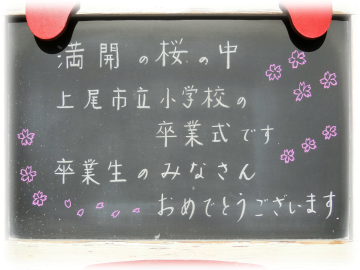 満開の桜の中
上尾市立小学校の
卒業式です
卒業生のみなさん
おめでとうございます。